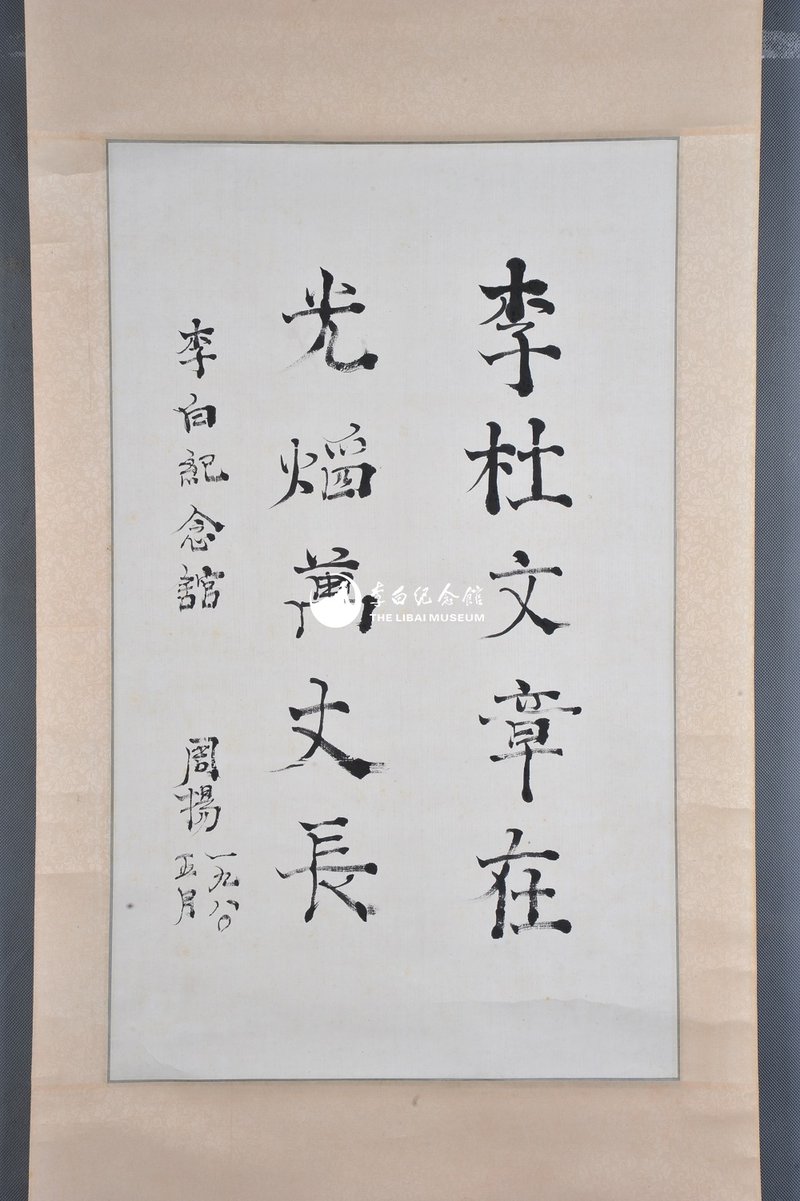 李杜文章在
光熖萬丈長
李白紀念舘
周揚
一九八〇
五月
李白纪念館
THE LIBAI MUSEUM